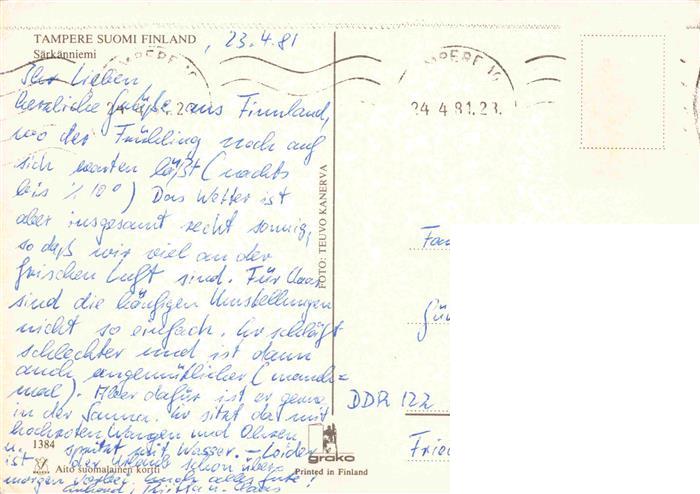 TAMPERE SUOMI FINLAND
Särkänniemi
, 23.4.81
Ihr Lieben
herzliche Grüße aus Finnland,
wo der Frühling noch auf
sich warten läßt (nachts
bis ./. 10°) Das Wetter ist
aber insgesamt recht sonnig,
so daß wir viel an der
frischen Luft sind. Für
sind die häufigen Umstellungen
nicht so einfach. Er schläft
schlechter und ist dann
auch ungemütlicher (manch=
mal). Aber dafür ist er gern
in der Sauna. Er sitzt da mit
hochroten Wangen und Ohren
u. spritzt mit Wasser. – Leider
ist der Urlaub schon über=
morgen vorbei. Euch alles Gute!
1384
Aito suomalainen kortti
FOTO: TEUVO KANERVA
TAMPERE 10
24.4.81.21
Fam
DDR 122
Fried
grako
Printed in Finland